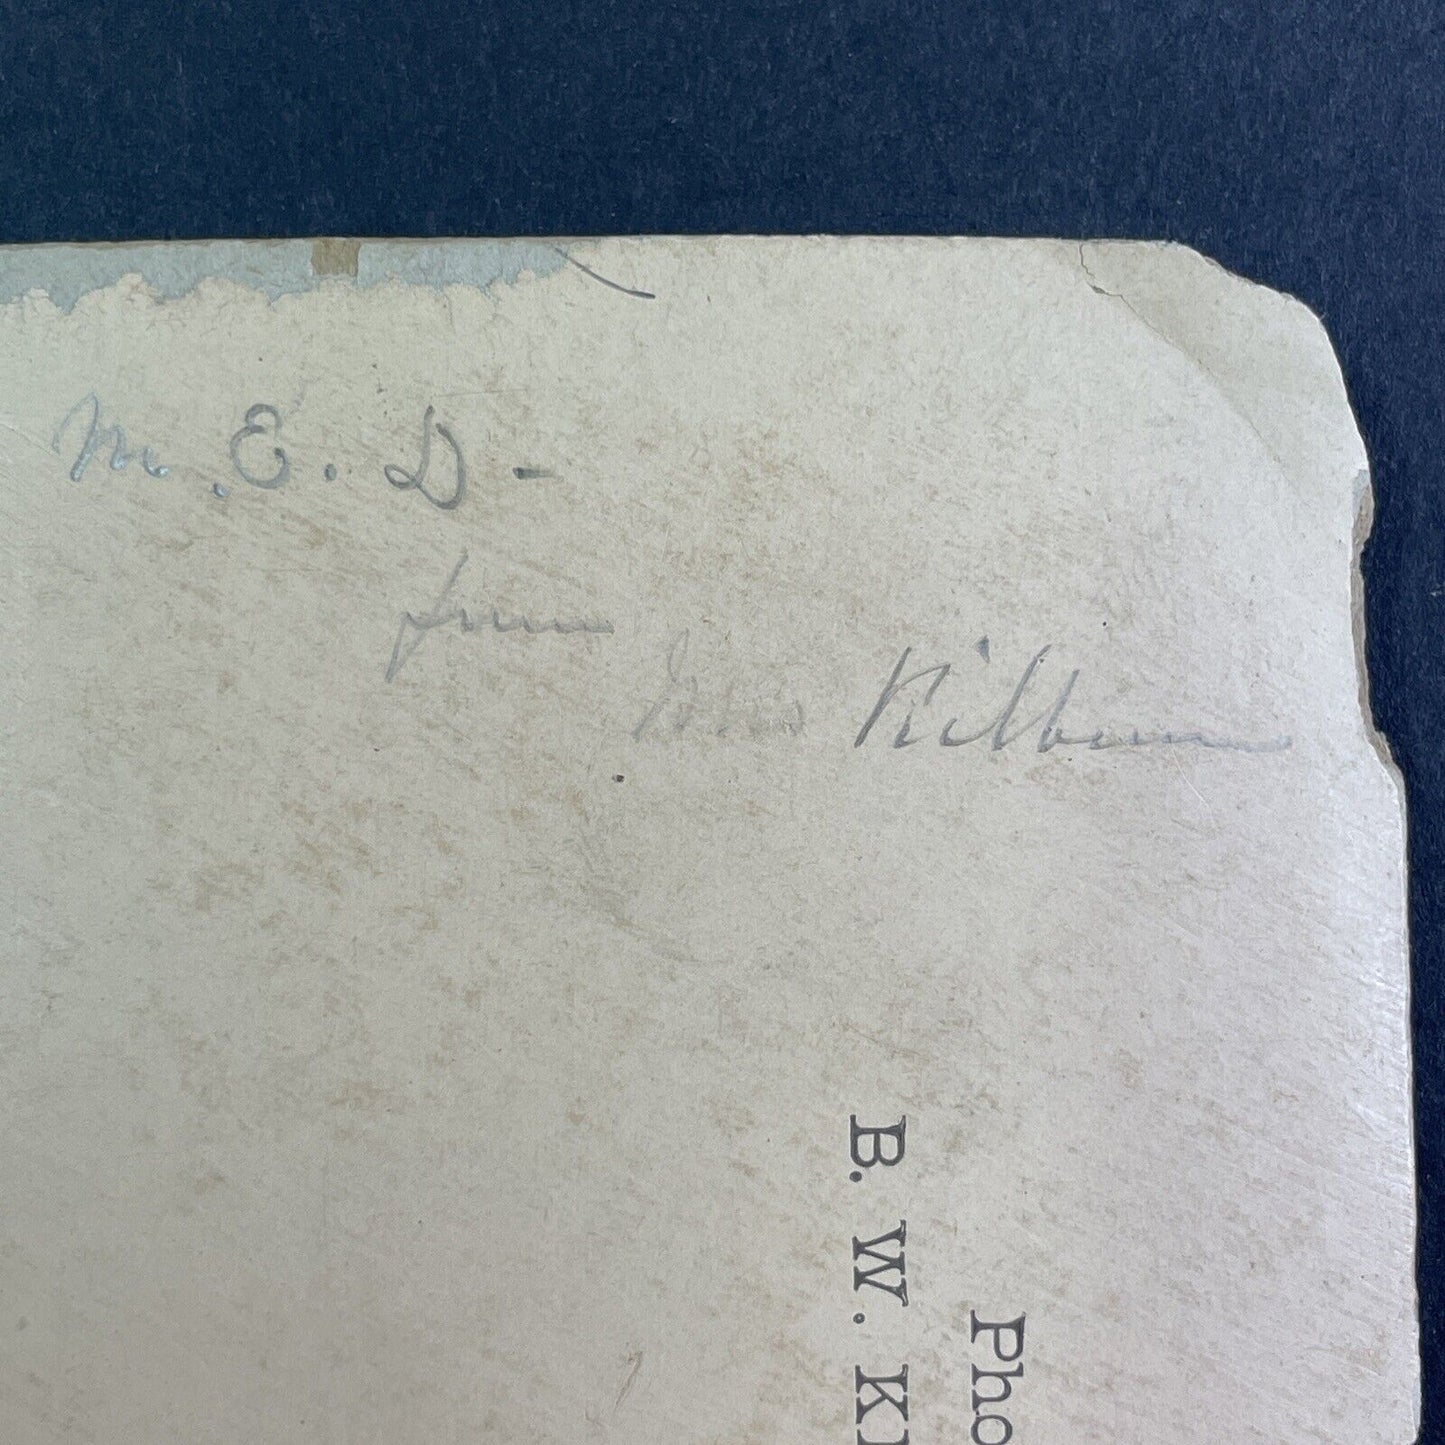 M. E. D -
from
Mrs Kilburn
Pho
B. W. KI